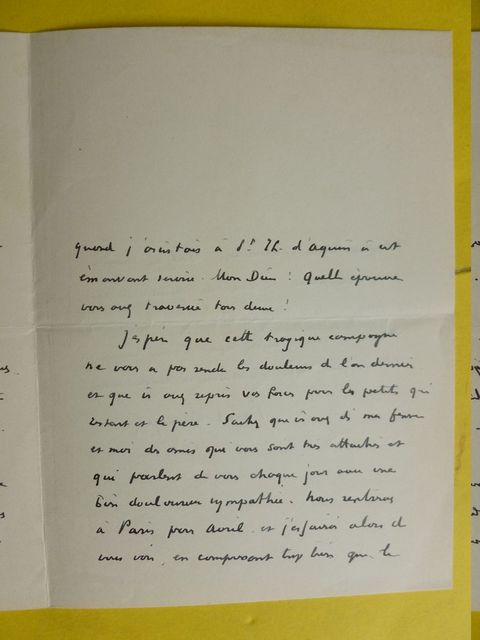 quand j'assistais à St Th. d'Aquin à cet
émouvant service. Mon Dieu ! Quelle épreuve
vous avez traversée tous deux !
J'espère que cette tragique campagne
ne vous a pas rendu les douleurs de l'an dernier
et que vous avez repris vos forces pour les petits qui
restent et le père. Sachez que vous avez en ma femme
et moi des amis qui vous sont très attachés et
qui parlent de vous chaque jour avec une
bien douloureuse sympathie. Nous rentrons
à Paris pour avril et j'essaierai alors de
vous voir, en comprenant trop bien que le